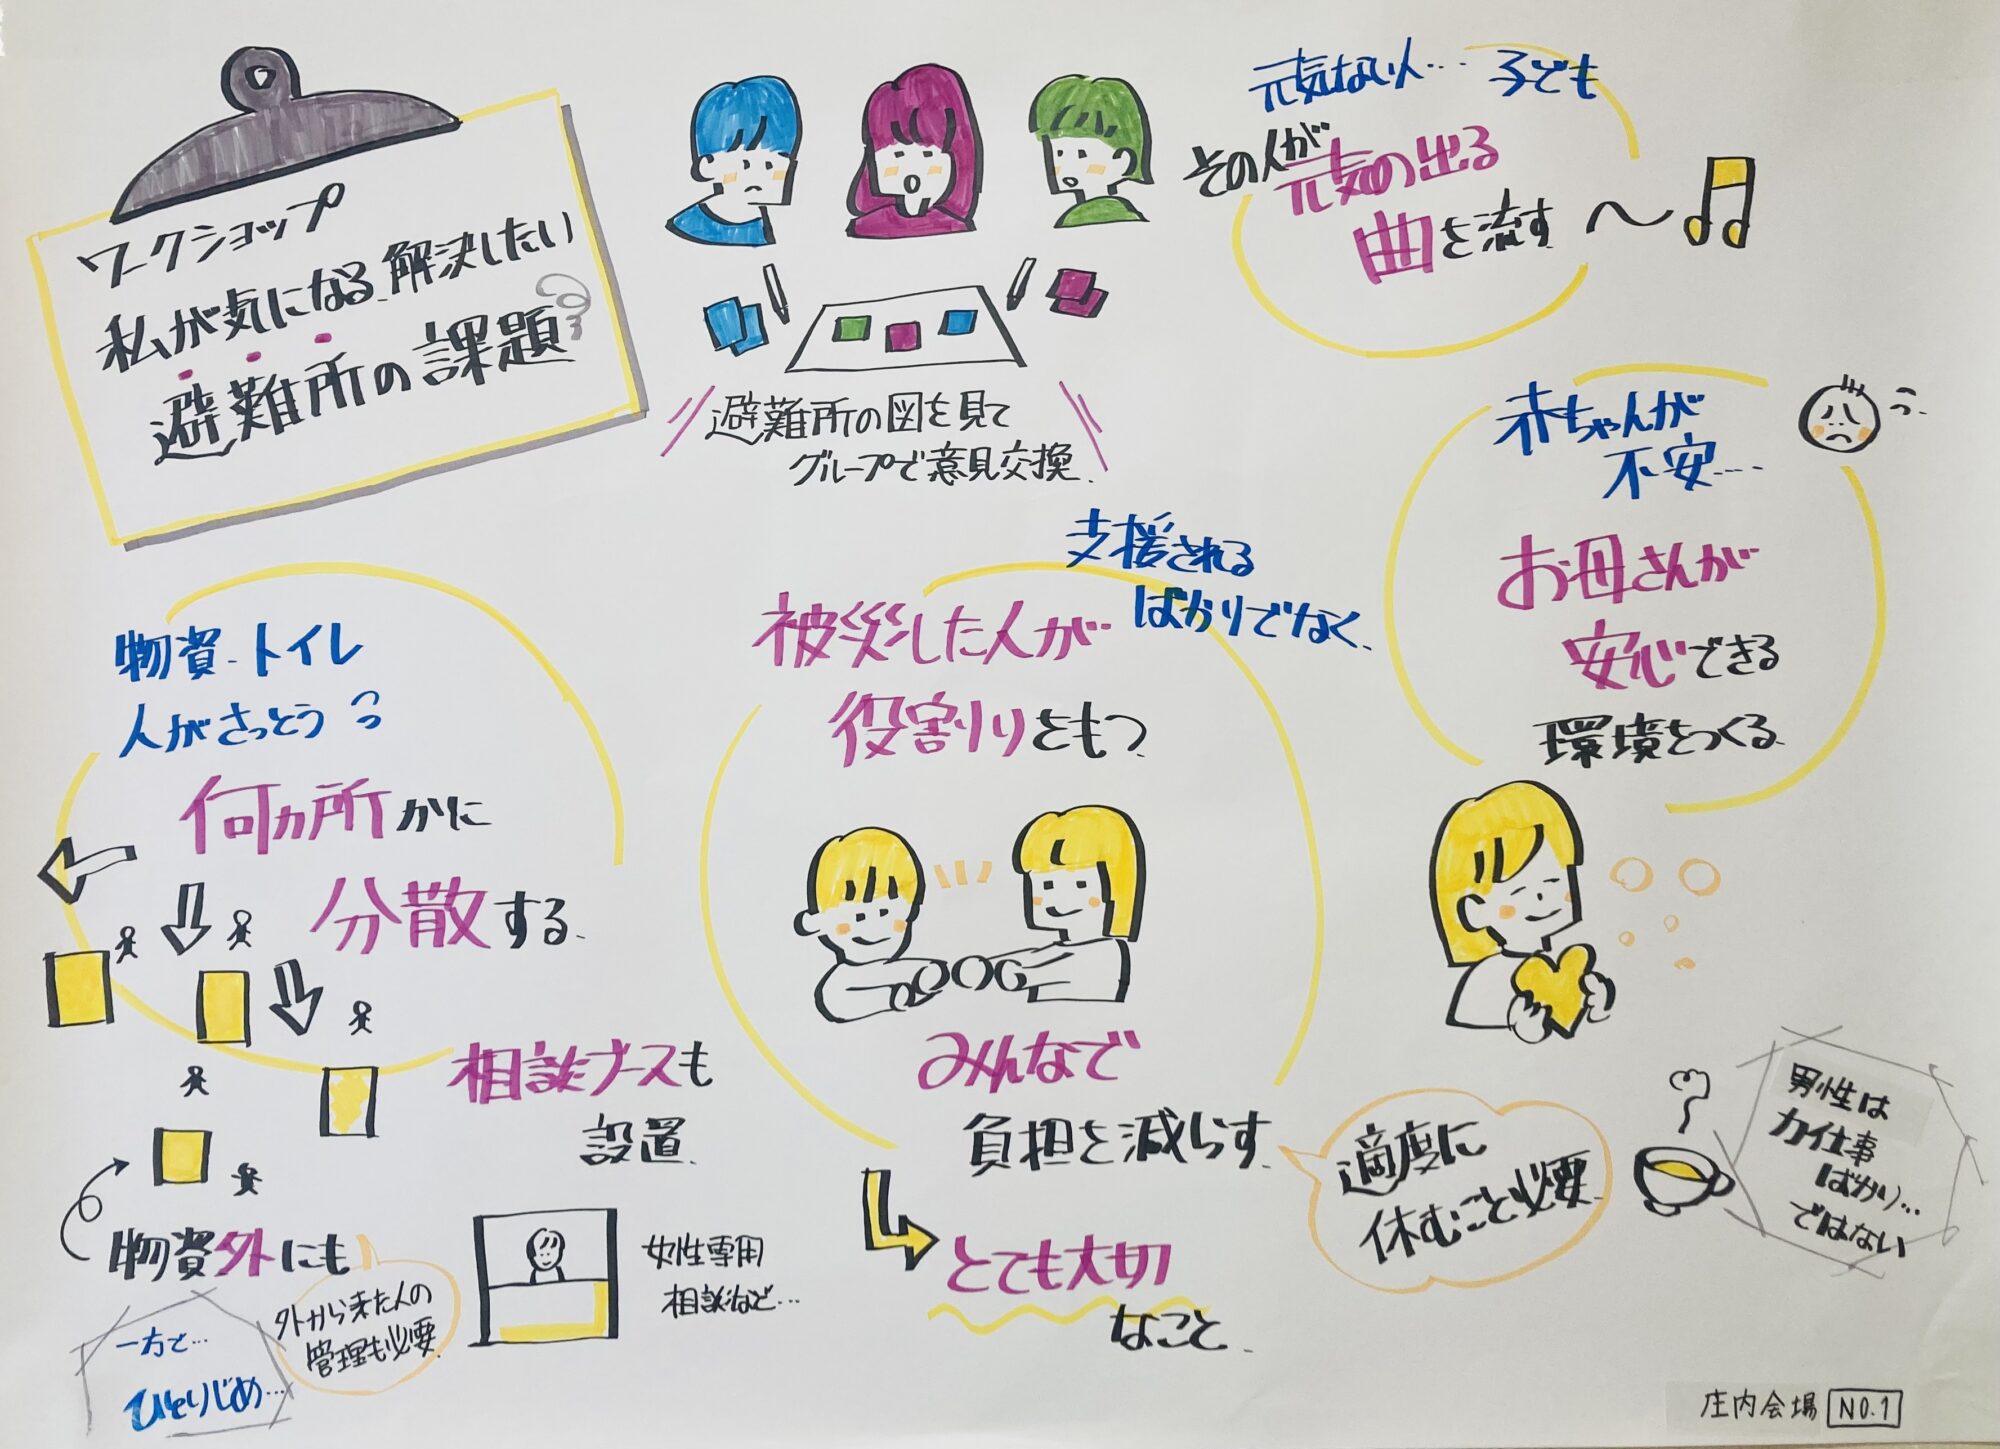 ワークショップ
私が気になる、解決したい
避難所の課題
避難所の図を見て
グループで意見交換
元気ない人… 子ども
その人が
元気の出る
曲を流す
赤ちゃんが
不安…
お母さんが
安心できる
環境をつくる
物資・トイレ
人がさっとう
何カ所かに
分散する
相談ブースも
設置
女性専用
相談など…
物資外にも
外から来た人の
管理も必要
一方で…
ひとりじめ…
支援される
ばかりでなく
被災した人が
役割りをもつ
みんなで
負担を減らす
とても大切
なこと
適度に
休むこと必要
男性は
力仕事
ばかり…
ではない
庄内会場 NO.1